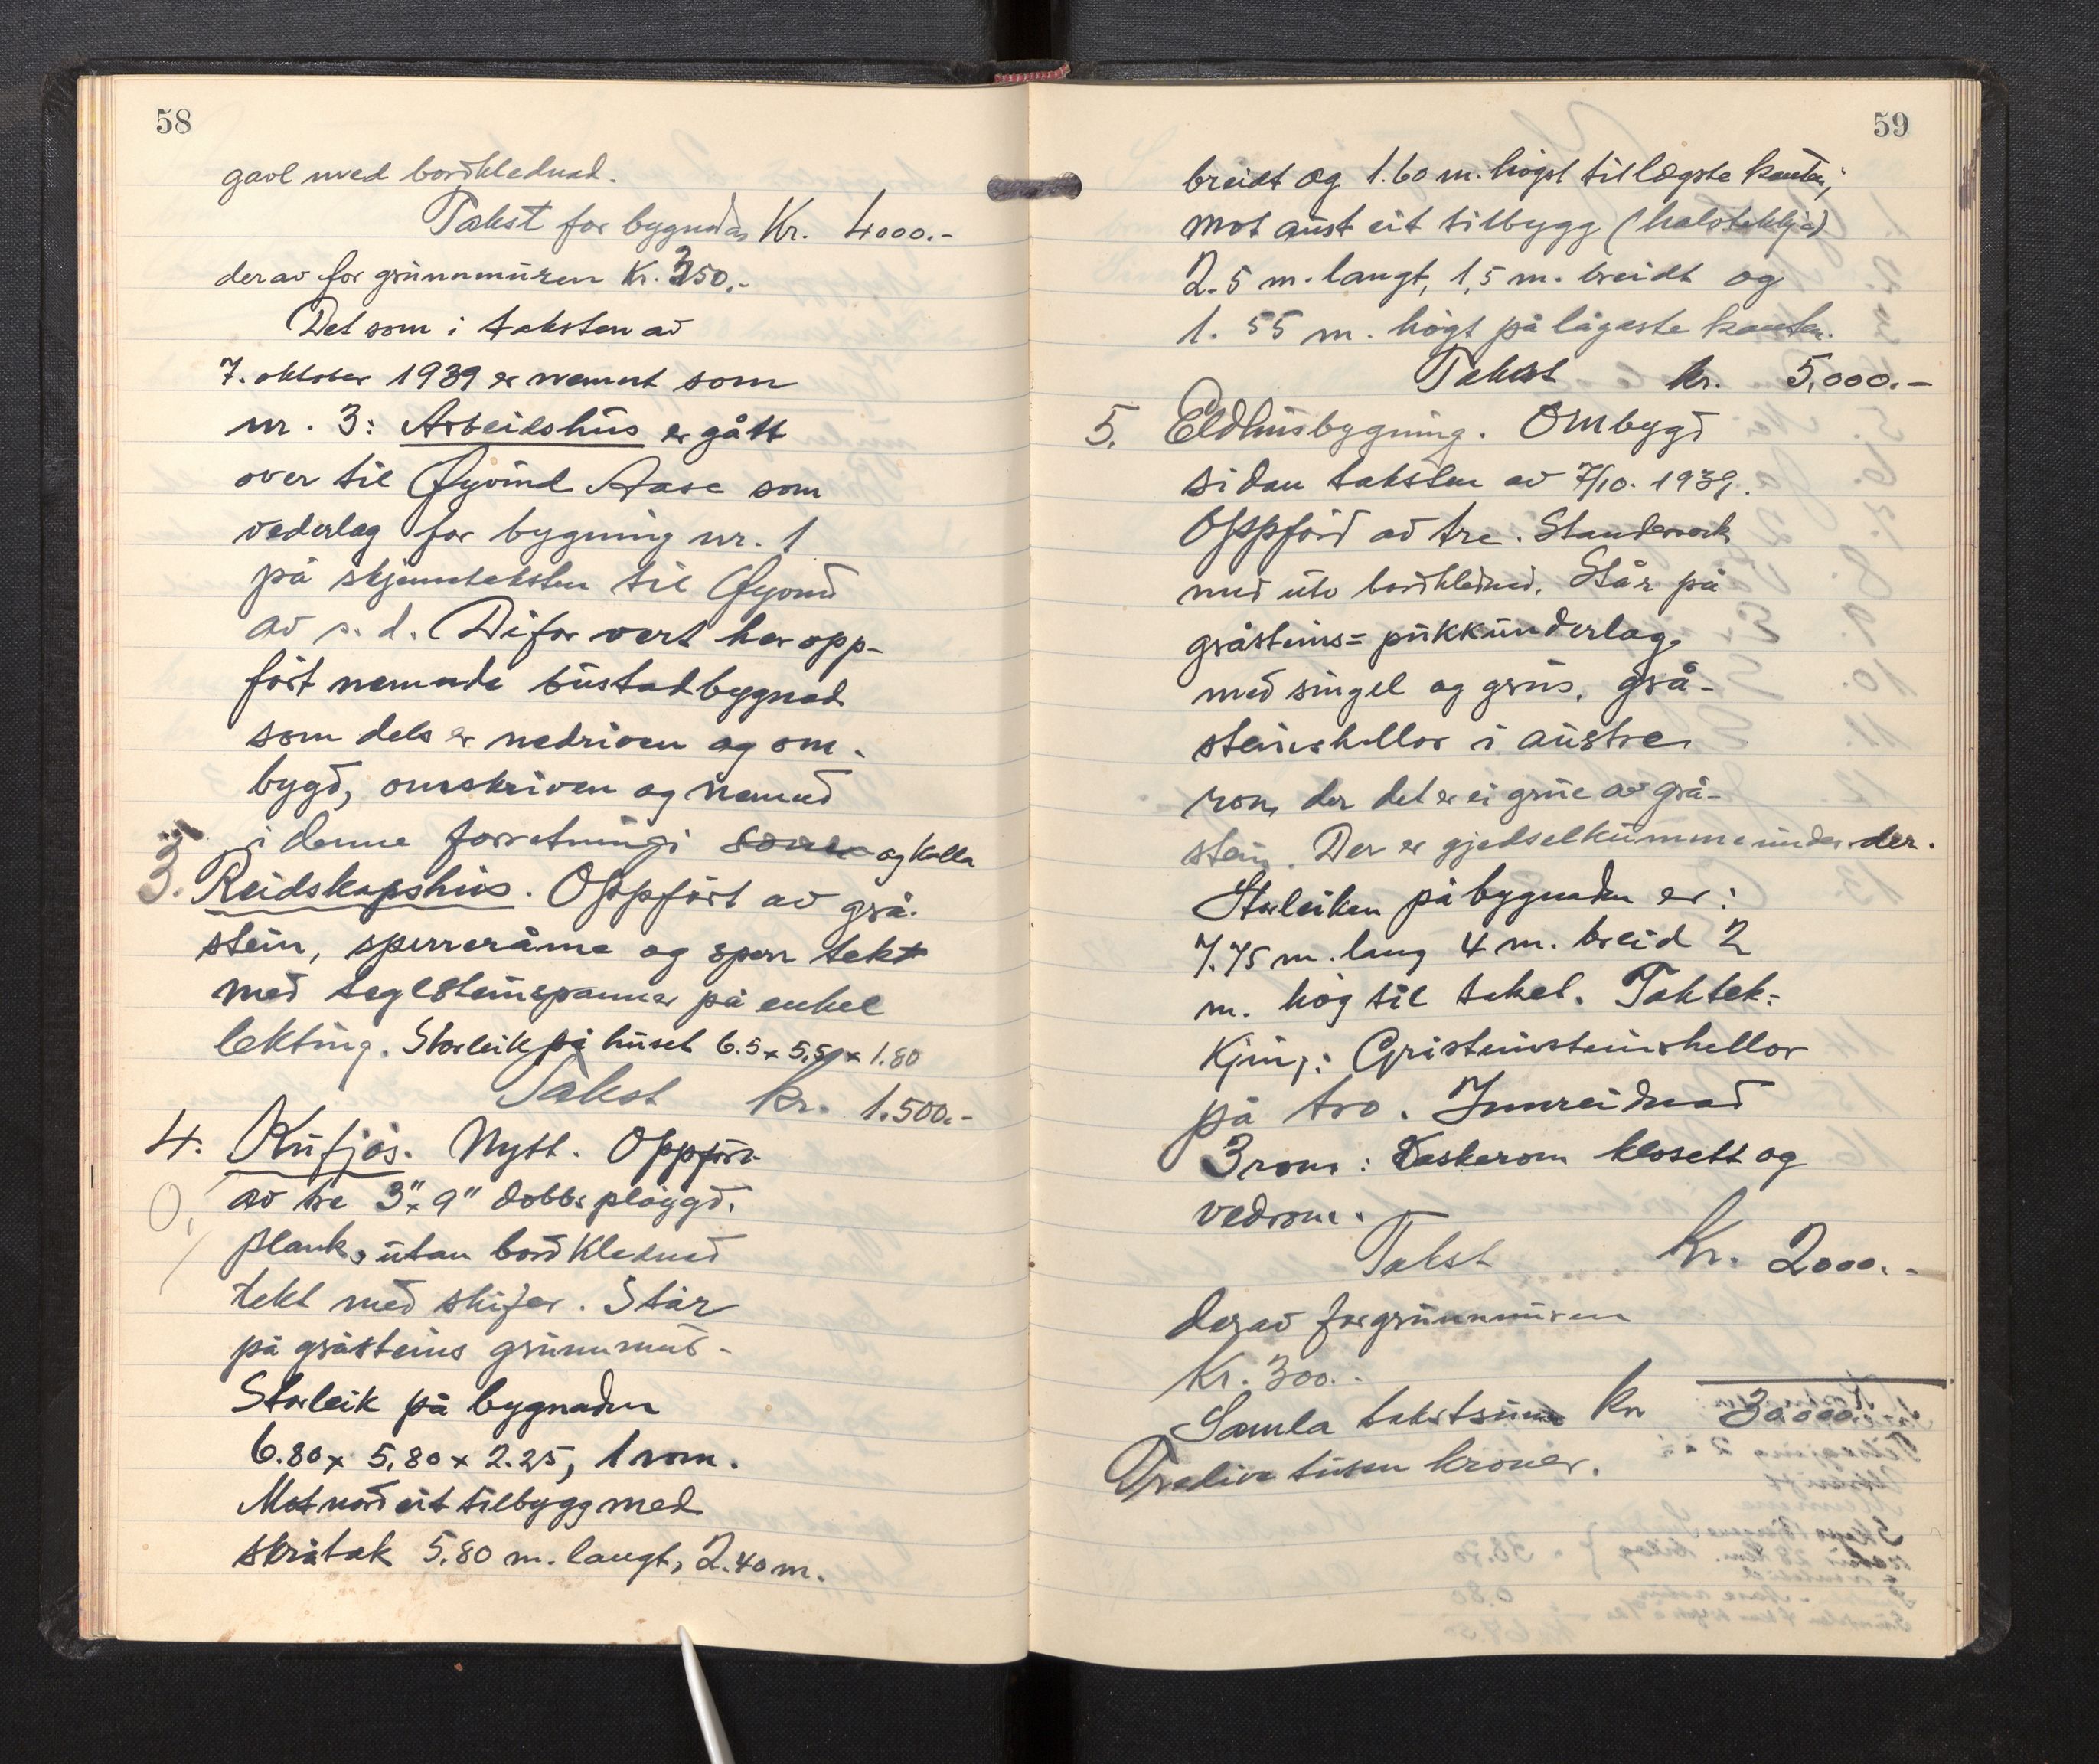 58
gavl med bordklednad.
Takst for bygnaden Kr. 4000.-
derav for grunnmuren Kr. 350.-
Det som i taksten av
7. oktober 1939 er nemnt som
nr. 3: Arbeidshus er gått
over til Øyvind Aase som
vederlag for bygning nr. 1
på skjønntaksten til Øyvind
av s. d. Difor vert her opp-
ført nemnde bustadbygnad
som dels er nedriven og om-
bygd, omskriven og nemnd
i denne forretningi som og kalla
3. Reidskapshus. Oppført av grå-
stein, sperreråme og sperr tekt
med teglsteinspanner på enkel
lekting. Storleik på huset 6.5 x 5,50 x 1.80
Takst kr. 1.500.-
4. Kufjøs. Nytt. Oppført
av tre 3" x 9" dobb: pløygd.
plank, utan bordklednad
tekt med skifer. Står
på gråsteins grunnmur -
Storleik på bygnaden
6.80 x 5.80 x 2.25, 1 rom.
Mot nord eit tilbygg med
skråtak 5.80 m. langt, 2.40 m.
59
breidt og 1.60 m. høgst til lægste kanten;
mot aust eit tilbygg (halvtekkja)
2.5 m. langt, 1,5 m. breidt og
1.55 m. høgt på lågaste kanten.
Takst kr. 5,000.-
5. Eldhusbygning. Ombygd
sidan taksten av 7/10. 1939.
Oppførd av tre. Standerverk
med utv bordklednad. Står på
gråsteins= pukkunderlag,
med singel og grus, grå-
steinshellor i austre
rom, der det er ei grue av grå-
stein. Der er gjødselkumme under der.
Storleiken på bygnaden er:
7.75 m. lang 4 m. breid 2
m. høg til taket. Taktek-
kjing: Gråsteinsteinshellor
på tro. Innreidnad
3 rom: Vaskerom klosett og
vedrom.
Takst Kr. 2000.-
derav for grunnmuren
Kr. 300.-
Samla takstsum kr 30.000.
Tredive tusen kroner.